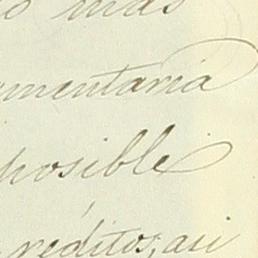 o mas
mentaria
posible
réditos; asi